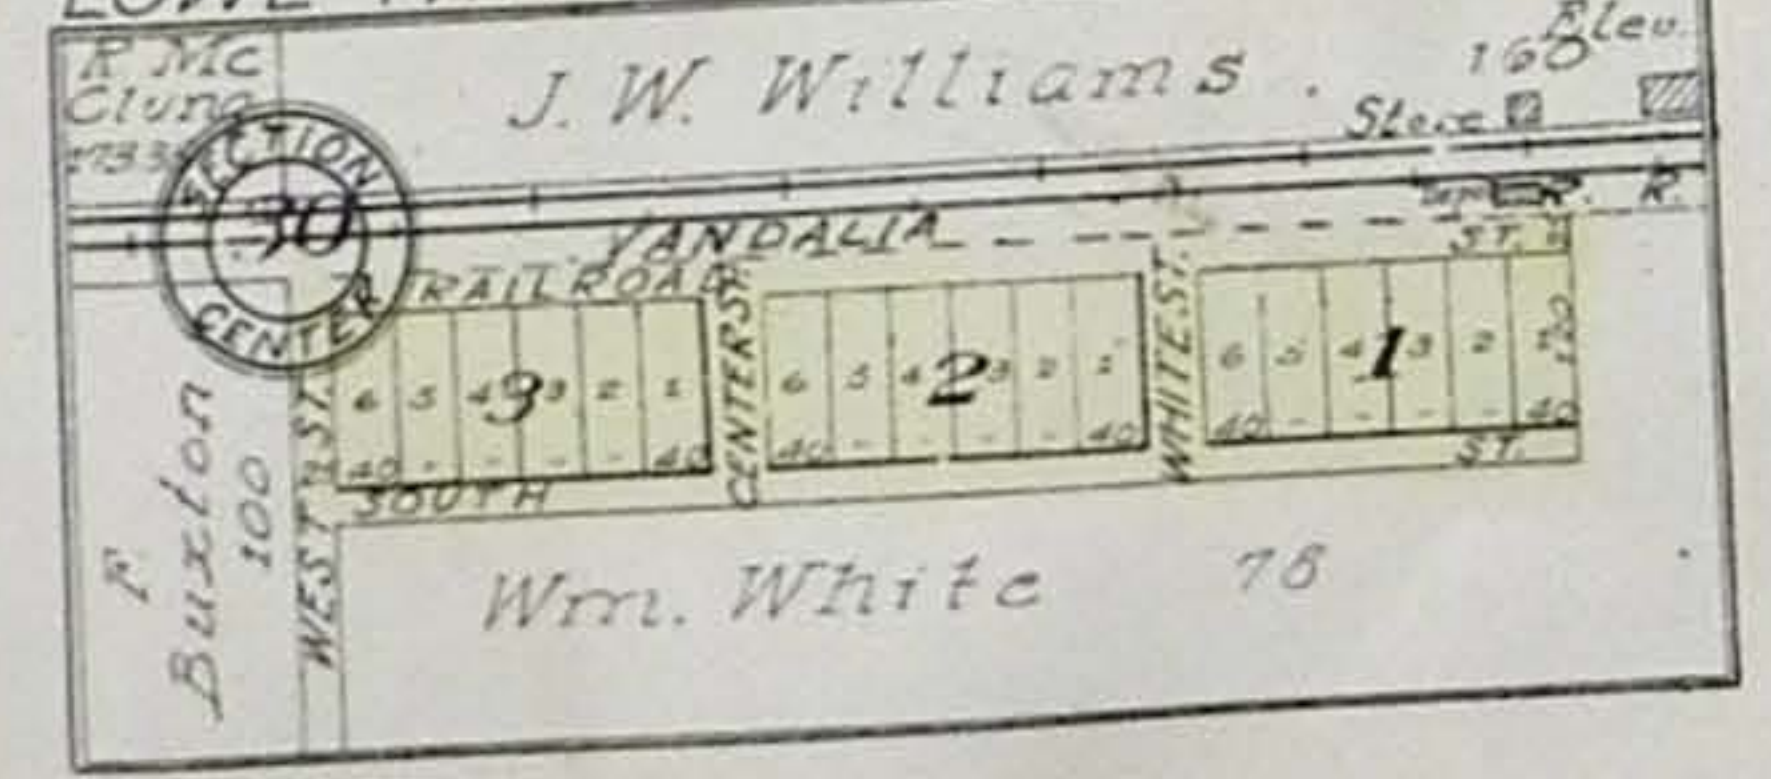 R. Mc
Clung
J. W. Williams.
160
Elev.
Store
SECTION
30
CENTER
VANDALIA
R. R.
RAILROAD
ST.
6 5 4 3 2 1
3
40 - - - - 40
CENTER ST.
6 5 4 3 2 1
2
40 - - - - 40
WHITE ST.
6 5 4 3 2 1
1
120
40 - - - - 40
SOUTH
ST.
WEST ST.
F.
Buxton
100
Wm. White 78